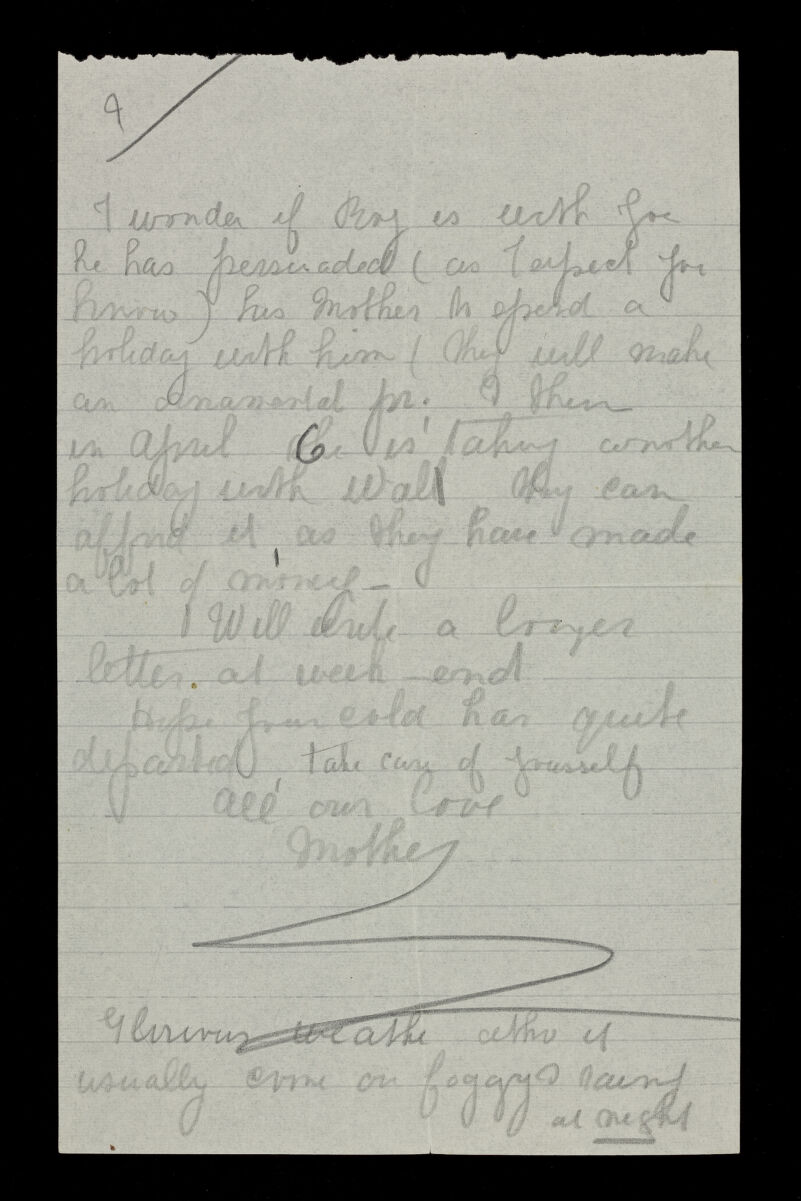 9
I wonder if Roy is with you
he has persuaded ( as I expect you
know ) his Mother to spend a
holiday with him ( they will make
an ornamental pr. & then
in April she is taking another
holiday with Walt they can
afford it as they have made
a lot of money -
I Will write a longer
letter at week-end
Hope your cold has quite
departed take care of yourself
All our love
Mother
Glorious weathe altho it
usually come on foggy & rainy
at night